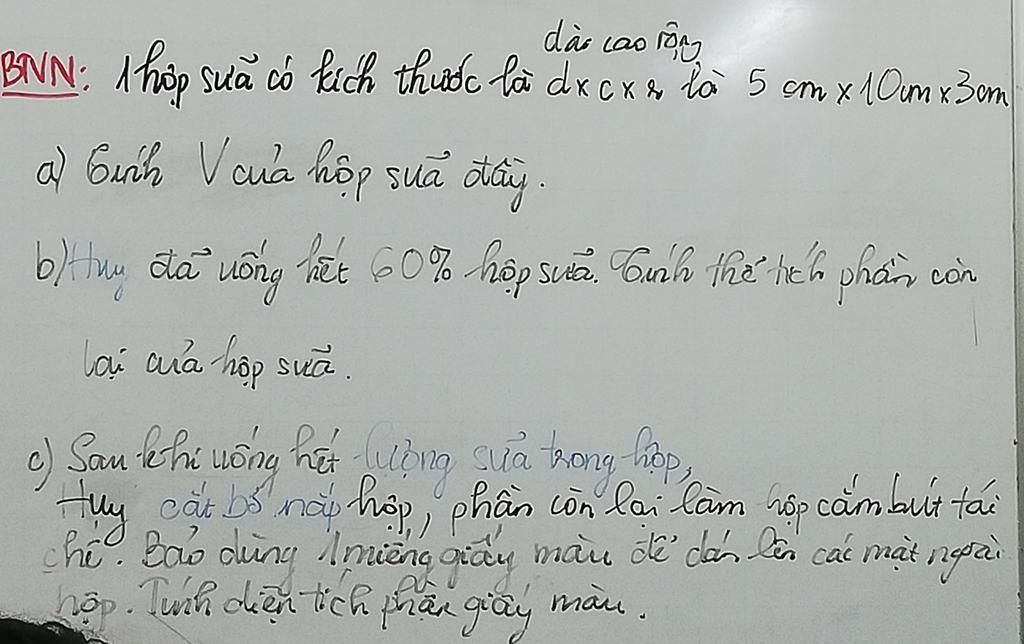 dài cao rộng
BNN: 1 hộp sữa có kích thước là d x c x r là 5 cm x 10cm x 3cm
a) Tính V của hộp sữa đầy.
b) Huy đã uống hết 60% hộp sữa. Tính thể tích phần còn
lại của hộp sữa.
c) Sau khi uống hết lượng sữa trong hộp,
Huy cắt bỏ nắp hộp, phần còn lại làm hộp cắm bút tái
chế. Bảo dùng 1 miếng giấy màu để dán lên các mặt ngoài
hộp. Tính diện tích phần giấy màu.